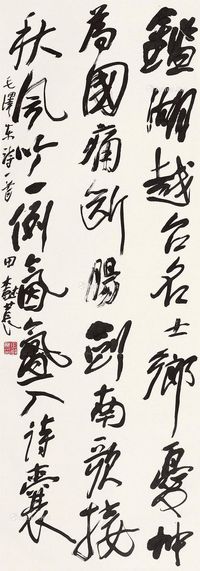 鑑湖越台名士鄉憂忡
為國痛断腸劍南歌接
秋風吟一例氤氳入詩囊
毛澤東詩一首
田樹萇